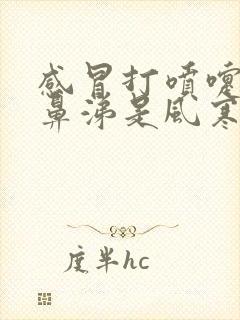 感冒打喷嚏
鼻涕是风寒
度半hc